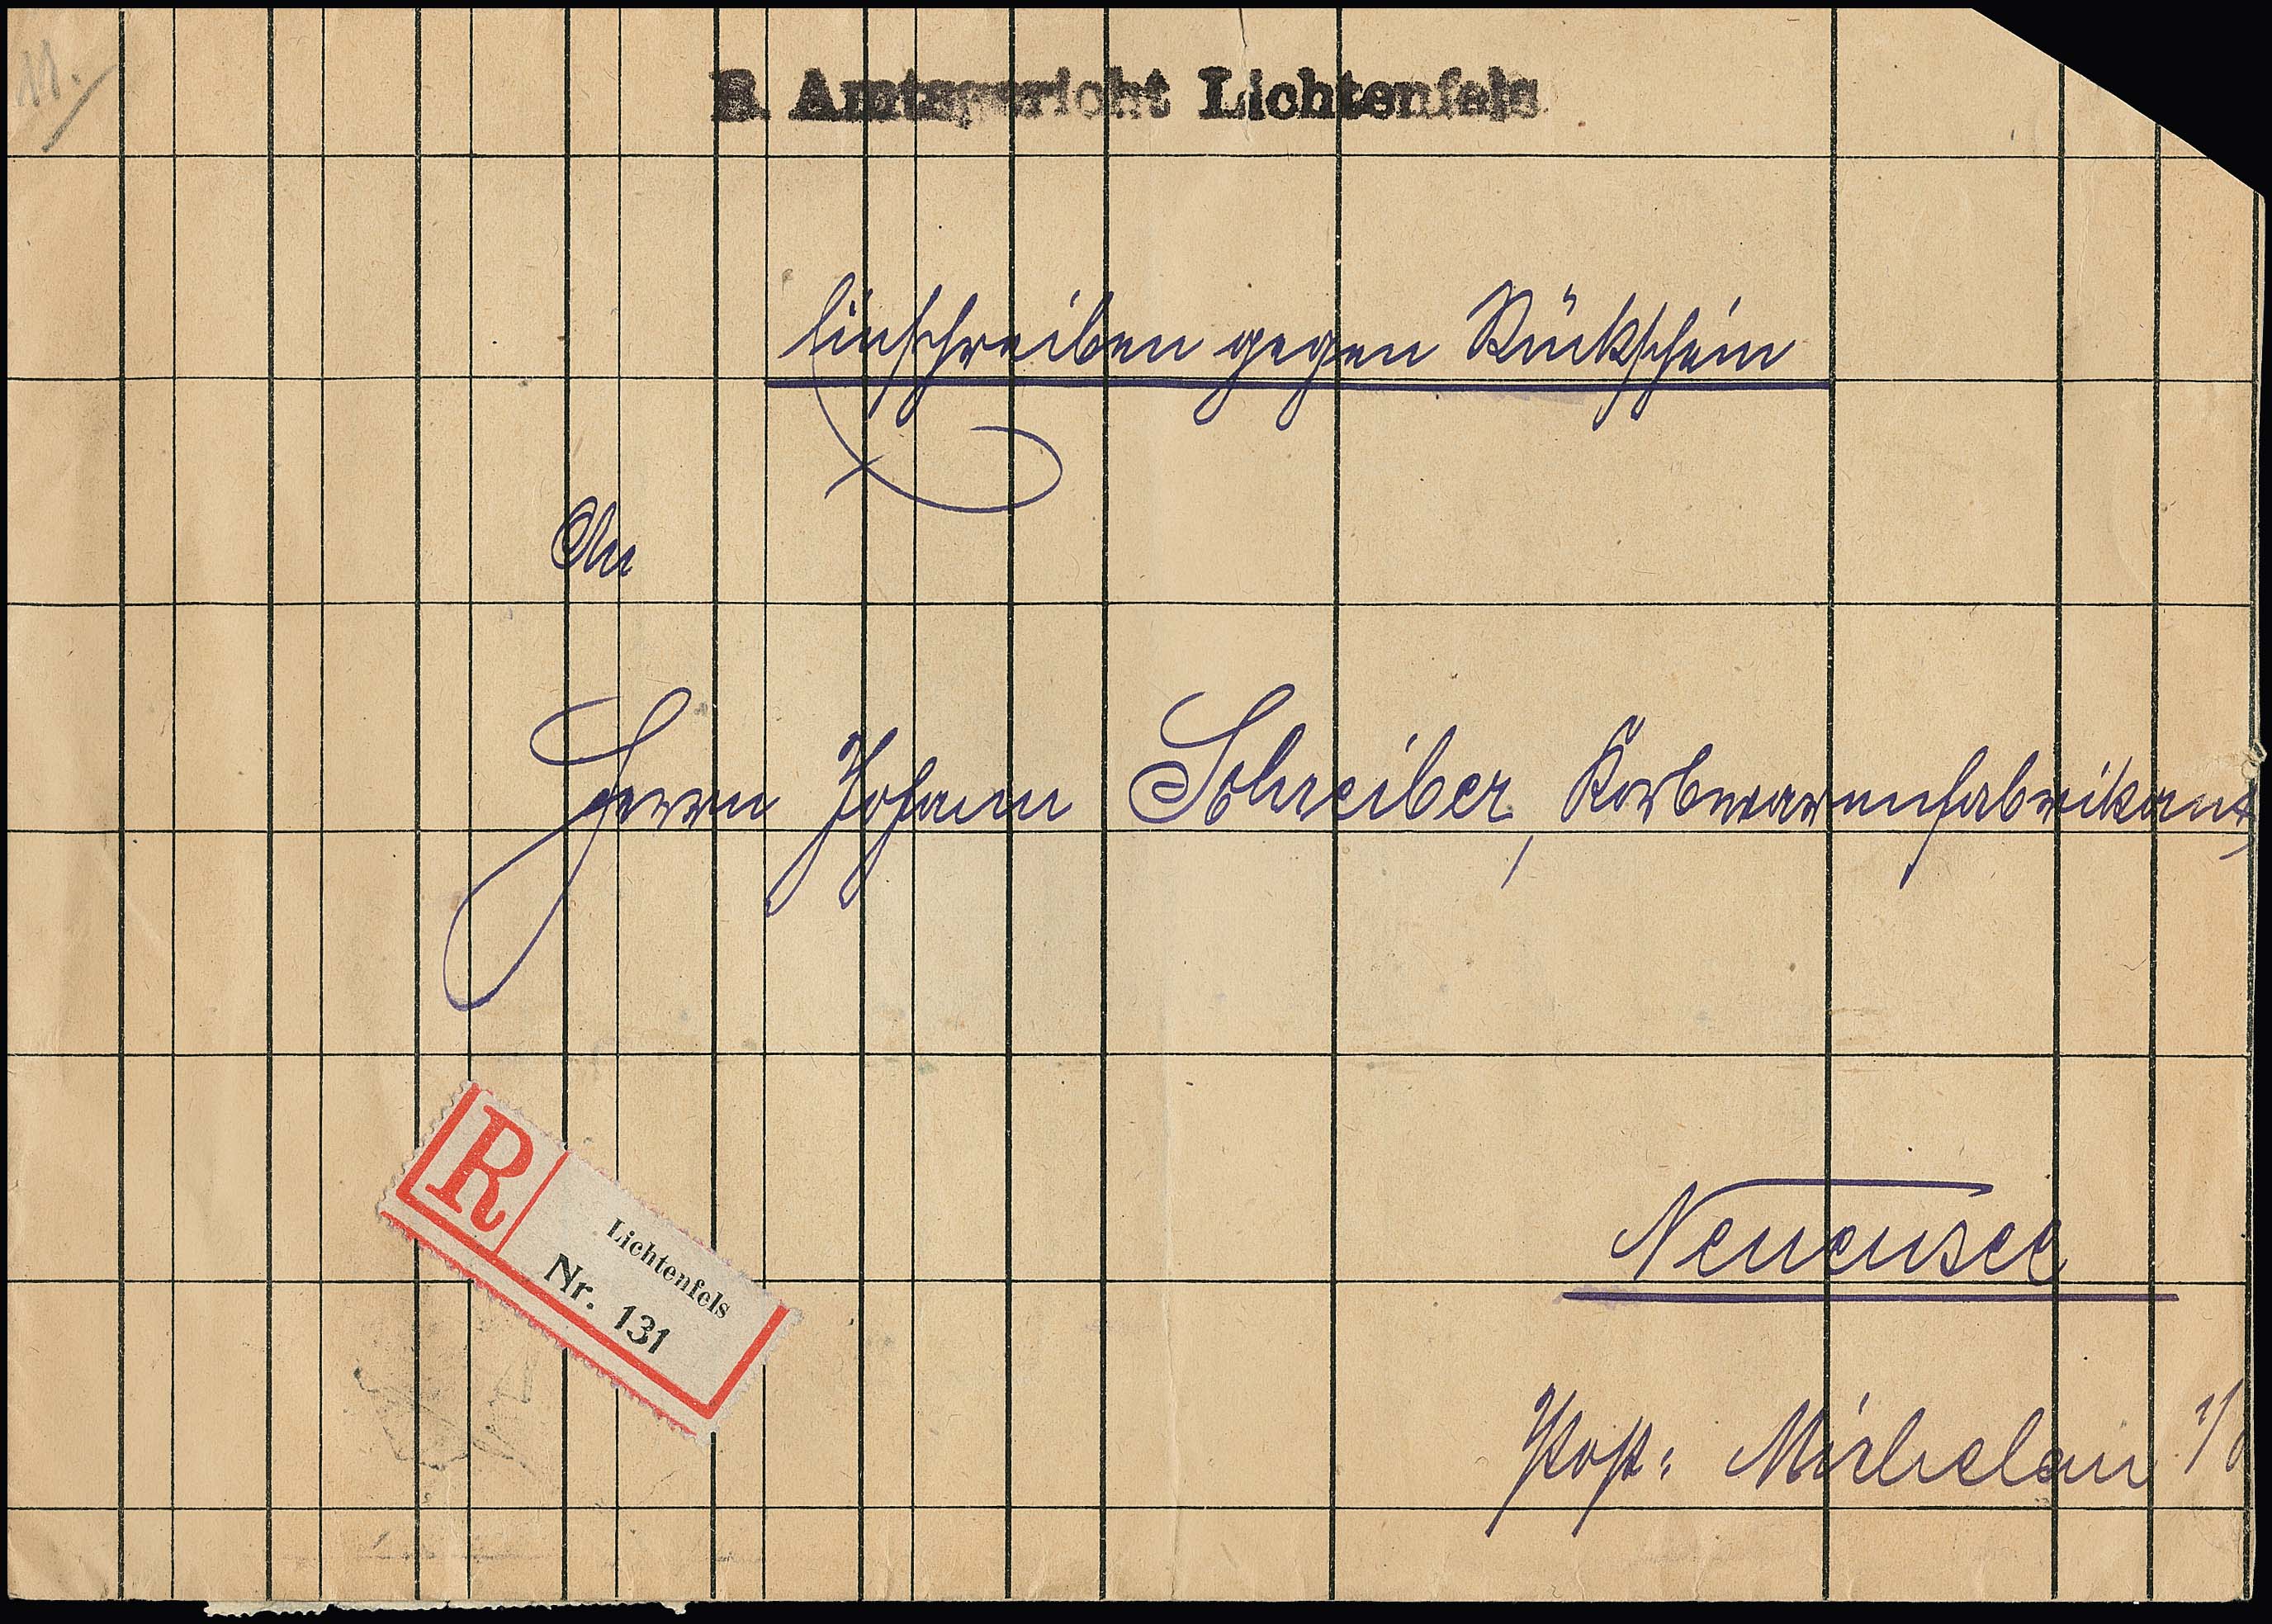 11.
B. Amtsgericht Lichtenfels
Einschreiben gegen Rückschein
An
Herrn Johann Schreiber, Korbwarenfabrikant,
R
Lichtenfels
Nr. 131
Neuensee
Post: Michelau